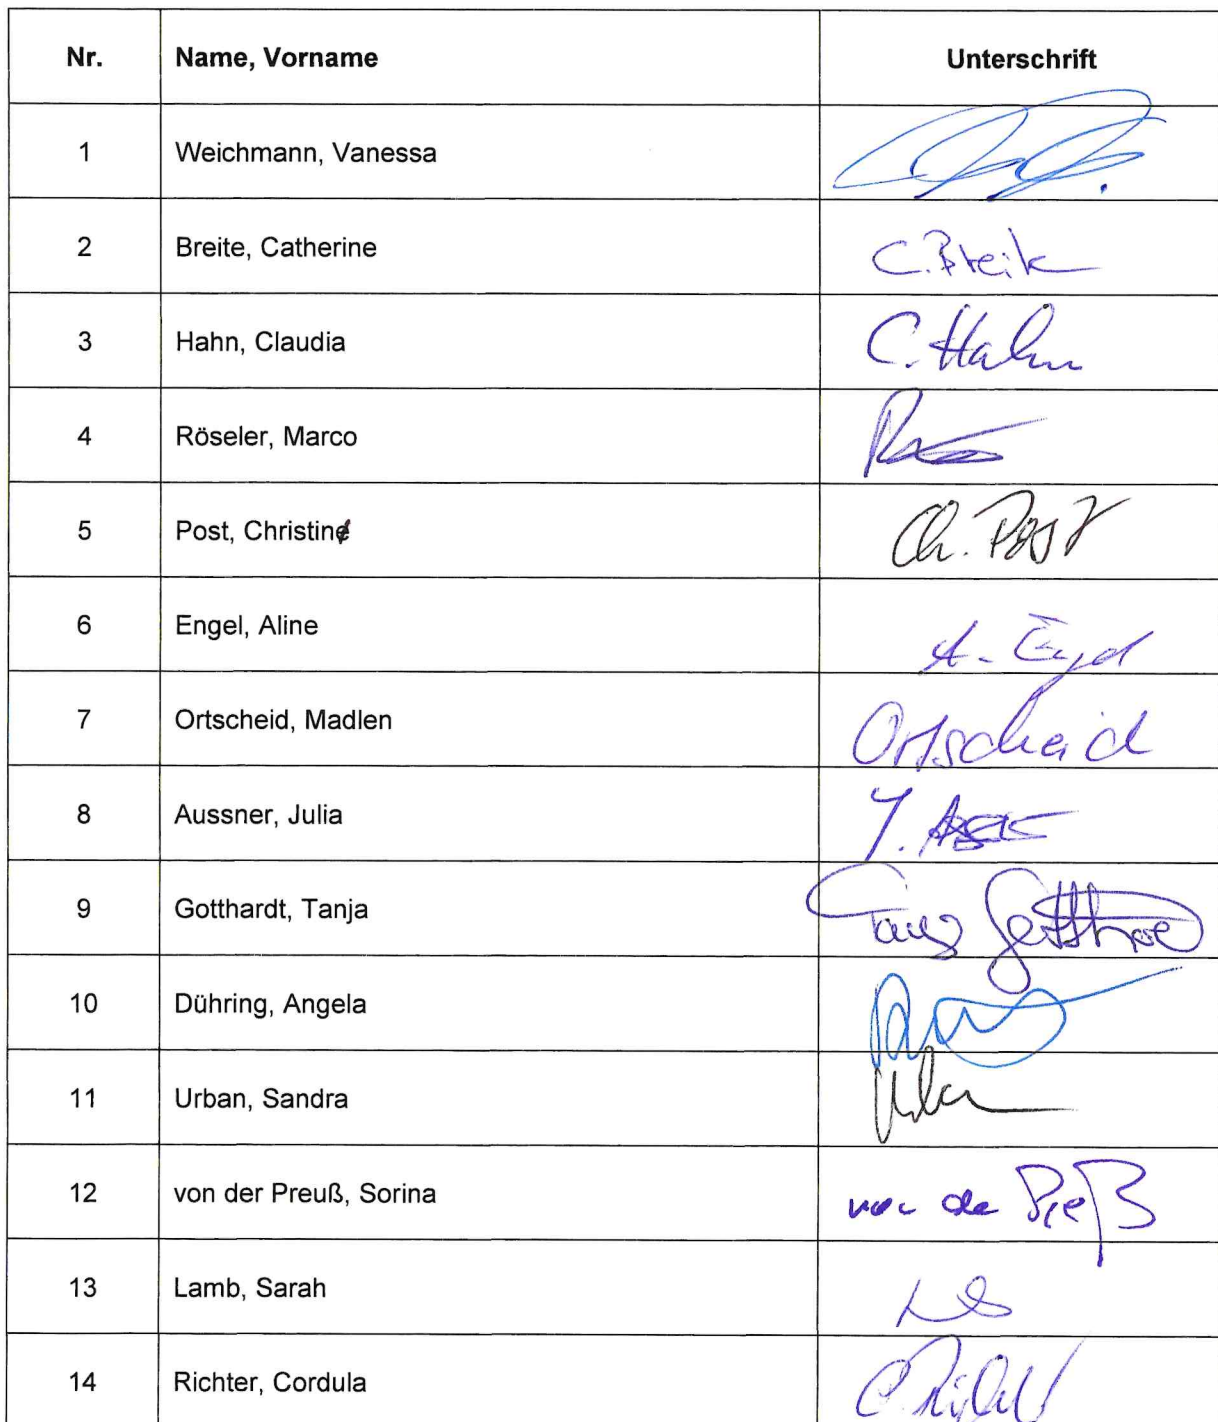 Nr. Name, Vorname Unterschrift
1 Weichmann, Vanessa
2 Breite, Catherine C. Breite
3 Hahn, Claudia C. Hahn
4 Röseler, Marco
5 Post, Christin Ch. Post
6 Engel, Aline A. Engel
7 Ortscheid, Madlen Ortscheid
8 Aussner, Julia J.
9 Gotthardt, Tanja Tanja
10 Dühring, Angela
11 Urban, Sandra
12 von der Preuß, Sorina von der Preuß
13 Lamb, Sarah
14 Richter, Cordula C. Richter